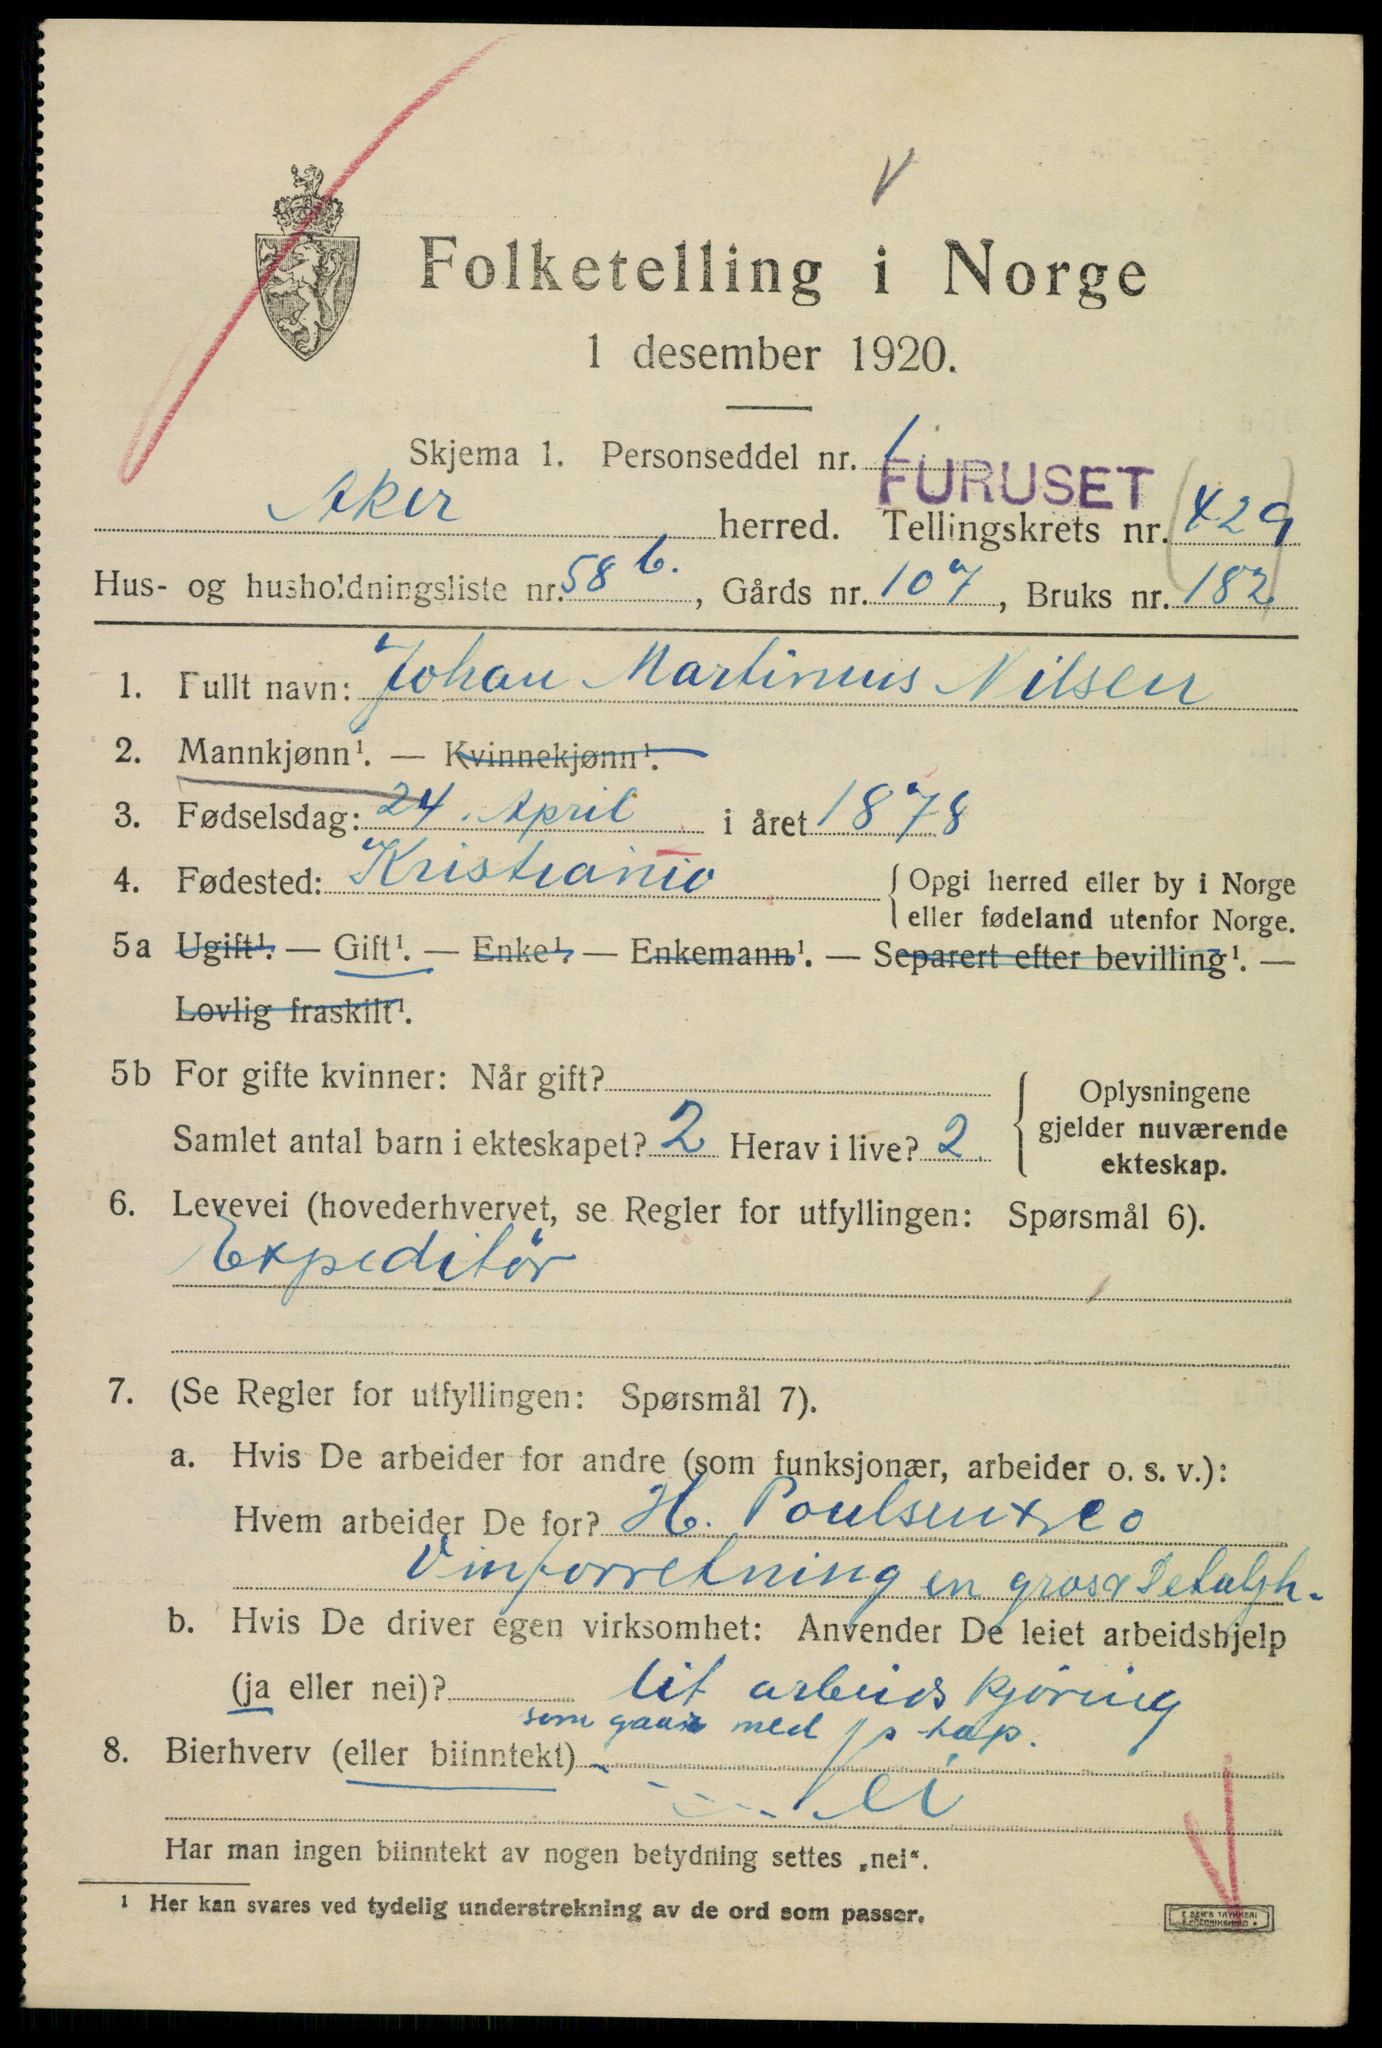 Folketelling i Norge
1 desember 1920.
Skjema 1. Personseddel nr. 1
FURUSET
Aker herred. Tellingskrets nr. (429)
Hus- og husholdningsliste nr. 58 b. , Gårds nr. 107 , Bruks nr. 182
1. Fullt navn: Johan Martinius Nilsen
2. Mannkjønn¹. — Kvinnekjønn¹.
3. Fødselsdag: 24. April i året 1878
4. Fødested: Kristiania { Opgi herred eller by i Norge
eller fødeland utenfor Norge.
5a Ugift¹. — Gift¹. — Enke¹. — Enkemann¹. — Separert efter bevilling¹. —
Lovlig fraskilt¹.
5b For gifte kvinner: Når gift?
Samlet antal barn i ekteskapet? 2 Herav i live? 2.
{ Oplysningene
gjelder nuværende
ekteskap.
6. Levevei (hovederhvervet, se Regler for utfyllingen: Spørsmål 6).
Expeditør
7. (Se Regler for utfyllingen: Spørsmål 7).
a. Hvis De arbeider for andre (som funksjonær, arbeider o. s. v.):
Hvem arbeider De for? H. Poulsen & Co
Vinforretning en gros & Detaljh.
b. Hvis De driver egen virksomhet: Anvender De leiet arbeidshjelp
(ja eller nei)? lit arbeids kjøring
som med tap.
8. Bierhverv (eller biinntekt)
Nei
Har man ingen biinntekt av nogen betydning settes „nei“.
¹ Her kan svares ved tydelig understrekning av de ord som passer.